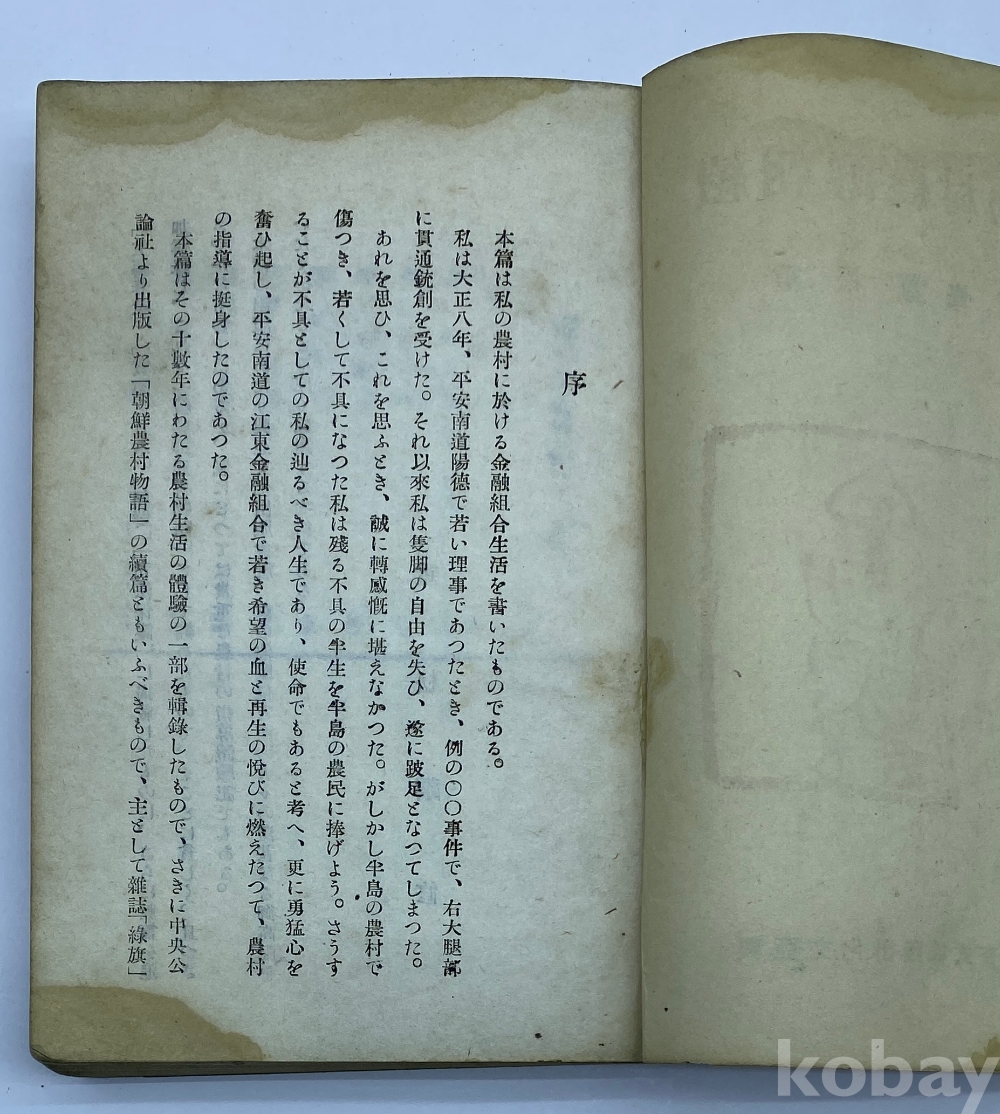 序
本篇は私の農村に於ける金融組合生活を書いたものである。
私は大正八年、平安南道陽德で若い理事であつたとき、例の〇〇事件で、右大腿部
に貫通銃創を受けた。それ以來私は隻脚の自由を失ひ、遂に跛足となつてしまつた。
あれを思ひ、これを思ふとき、誠に轉感慨に堪えなかつた。がしかし半島の農村で
傷つき、若くして不具になつた私は殘る不具の半生を半島の農民に捧げよう。さうす
ることが不具としての私の辿るべき人生であり、使命でもあると考へ、更に勇猛心を
奮ひ起し、平安南道の江東金融組合で若き希望の血と再生の悅びに燃えたつて、農村
の指導に挺身したのであつた。
本篇はその十數年にわたる農村生活の體驗の一部を輯錄したもので、さきに中央公
論社より出版した「朝鮮農村物語」の續篇ともいふべきもので、主として雜誌「綠旗」
kobay